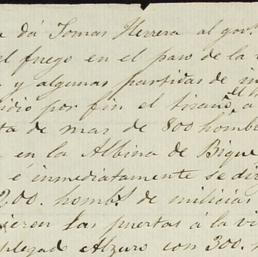 da dá Tomas Herrera al gov.
el fuego en el paso de la
y algunas partidas de m
idio por fin el tirano, a
ta de mas de 800 hombre
en la Albina de Bique
e inmediatamente se di
200. hombs de milicias
ieron las puertas á la vi
plegado Alzuro con 300.